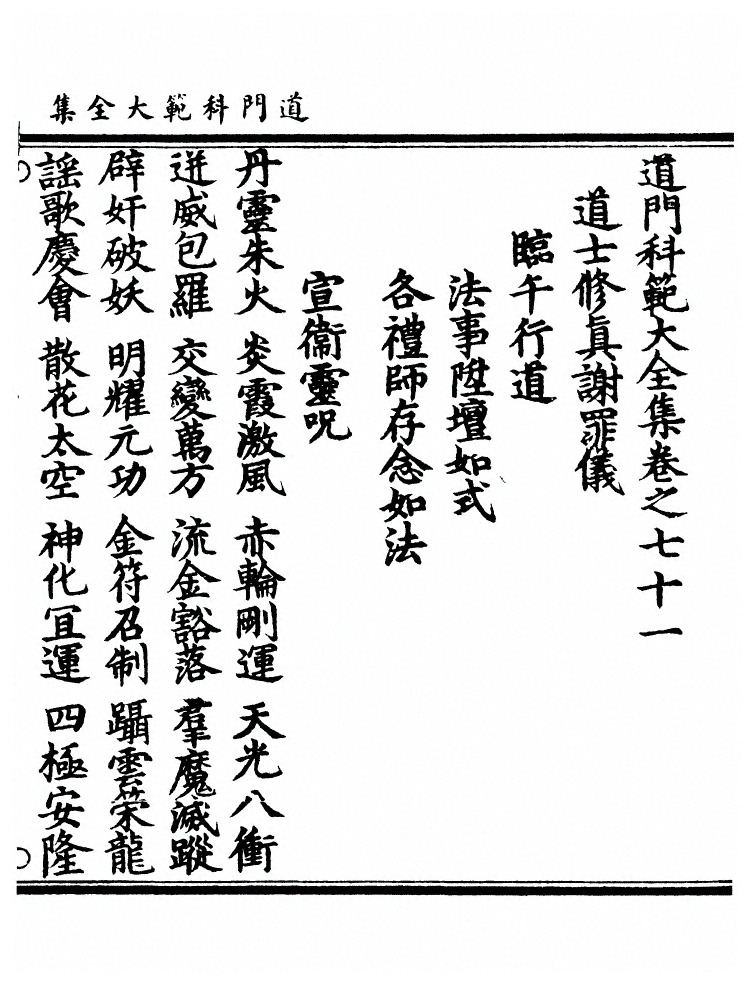 道門科範大全集
道門科範大全集卷之七十一
道士修眞謝罪儀
臨午行道
法事陞壇如式
各禮師存念如法
宣衞靈呪
丹靈朱火　炎霞激風　赤輪剛運　天光八衝
迸威包羅　交變萬方　流金豁落　羣魔滅蹤
辟奸破妖　明耀元功　金符召制　躡雲策龍
謡歌慶會　散花太空　神化冝運　四極安隆